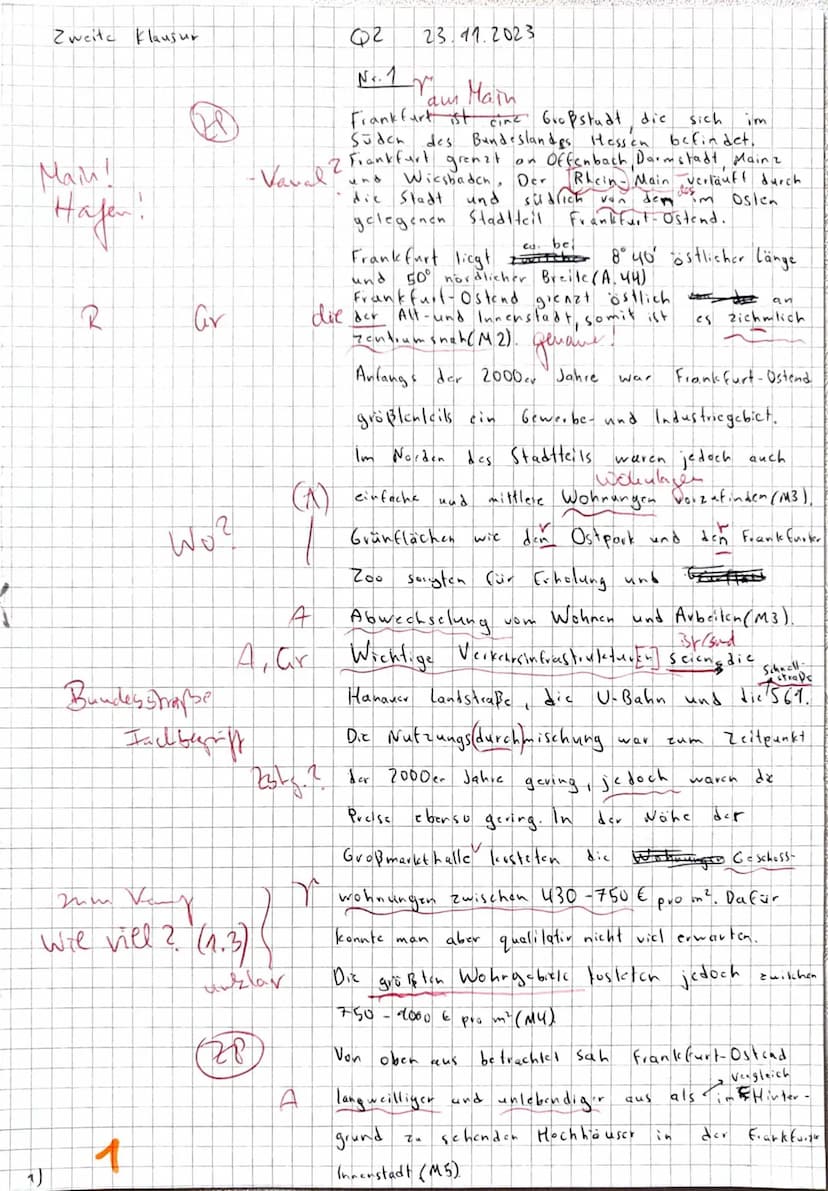 Zweite Klausur Q2 23.11.2023
Nr. 1
am Main
ZP Frankfurt ist eine Großstadt, die sich im
Süden des Bundeslandes Hessen befindet.
Main! Frankfurt grenzt an Offenbach, Darmstadt, Mainz
- Kanal? und Wiesbaden. Der Rhein-Main verläuft durch
Hafen! die Stadt und südlich von dem des im Osten
gelegenen Stadtteil Frankfurt-Ostend.
ca. bei
Frankfurt liegt 8°40' östlicher Länge
und 50° nördlicher Breite (A. 44)
Frankfurt-Ostend grenzt östlich an
R Gr die der Alt- und Innenstadt, somit ist es ziehmlich
zentrumsnah (M2). genauer!
Anfangs der 2000er Jahre war Frankfurt-Ostend
größtenteils ein Gewerbe- und Industriegebiet.
Im Norden des Stadtteils waren jedoch auch
Wohnlagen
(A) einfache und mittlere Wohnungen vorzufinden (M3).
Wo? Grünflächen wie den r Ostpark und den r Frankfurter
Zoo sorgten für Erholung und
A Abwechselung vom Wohnen und Arbeiten (M3).
ist/sind
A, Gr Wichtige Verkehrsinfrastruktur[en] seien die
Schnellstraße
Bundesstraße Hanauer Landstraße, die U-Bahn und die 561.
Fachbegriff Die Nutzungs(durch)mischung war zum Zeitpunkt
Zshg.? der 2000er Jahre gering, jedoch waren die
Preise ebenso gering. In der Nähe der
Großmarkthalle kosteten die Geschoss-
wohnungen zwischen 430-750 € pro m². Dafür
Wie viel? (1.3) konnte man aber qualitativ nicht viel erwarten.
unklar Die größten Wohngebiete kosteten jedoch zwischen
750 - 1000 € pro m² (M4)
ZP Von oben aus betrachtet sah Frankfurt-Ostend
Vergleich
A langweilliger und unlebendiger aus als im Hinter-
grund zu sehenden Hochhäuser in der Frankfurter
1) 1 Innenstadt (M5).